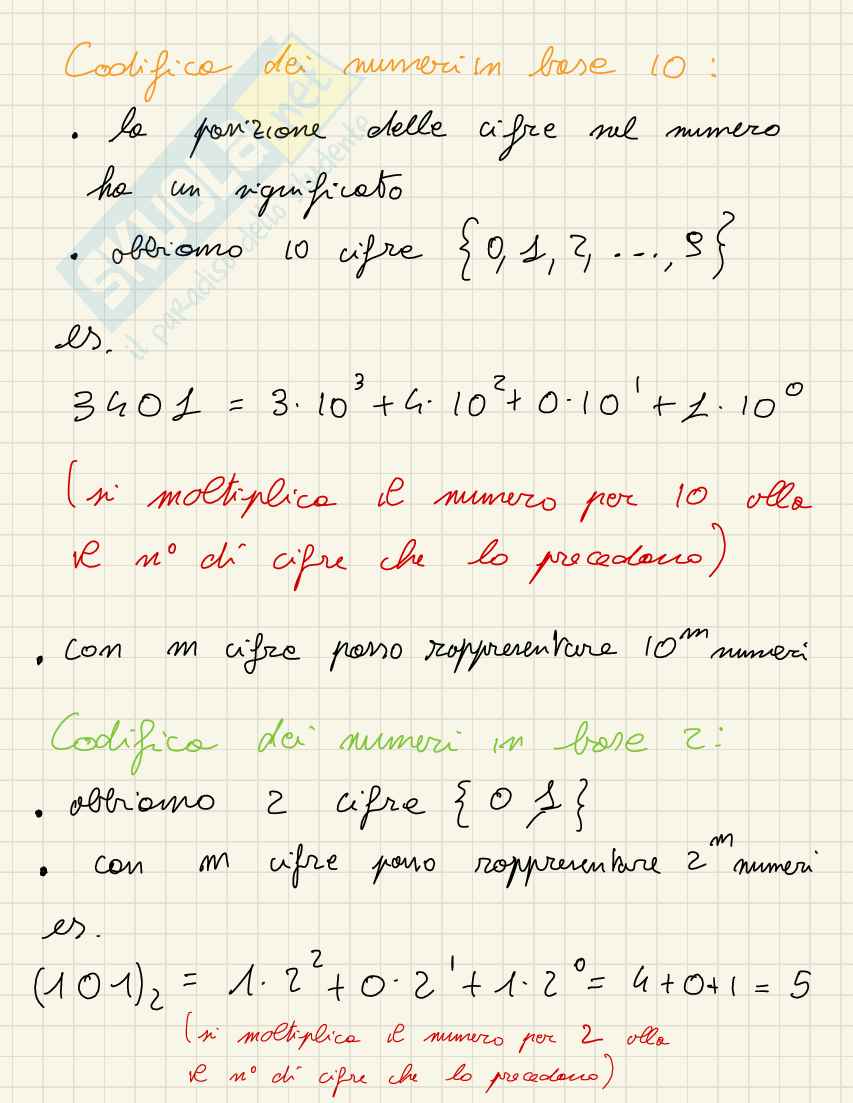 Codifica dei numeri in base 10 :
. la posizione delle cifre nel numero
ha un significato
. abbiamo 10 cifre {0, 1, 2, ...., 9}
es.
3401 = 3·10³ + 4·10² + 0·10¹ + 1·10⁰
(si moltiplica il numero per 10 alla
il n° di cifre che lo precedono)
. con m cifre posso rappresentare 10ᵐ numeri
Codifica dei numeri in base 2 :
. abbiamo 2 cifre {0, 1}
. con m cifre posso rappresentare 2ᵐ numeri
es.
(101)₂ = 1·2² + 0·2¹ + 1·2⁰ = 4+0+1 = 5
(si moltiplica il numero per 2 alla
il n° di cifre che lo precedono)
SKUOLA.net
il paradiso dello studente